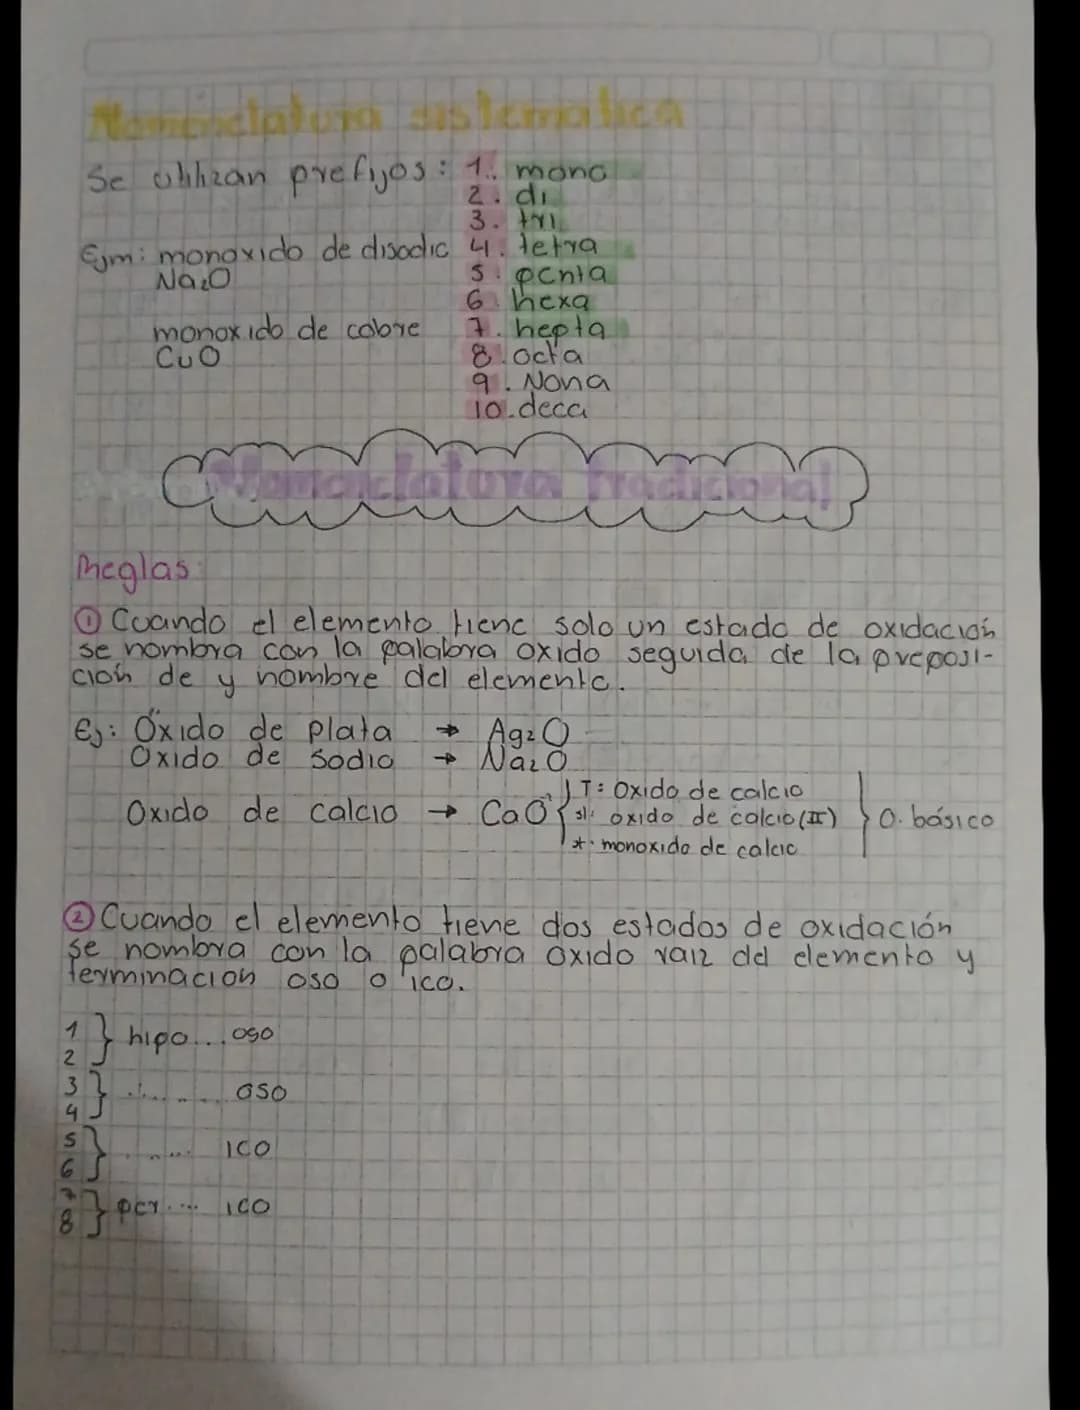 Nomenclatura sistematica
Se utilizan prefijos: 1. mono
2. di
3. tri
Ejm: monoxido de disodio 4. tetra
Na2O
5. penta
6 hexa
monoxido de cobre 7. hepta
CuO
8. octa
9. Nona
10. deca
Nomenclatura tradicional
Reglas:
① Cuando el elemento tiene solo un estado de oxidación
se nombra con la palabra oxido seguida de la preposi-
ción de y nombre del elemento.
Ej: Óxido de plata → Ag2O
Oxido de sodio → Na2O
Oxido de calcio → CaO { T: Oxido de calcio
st: oxido de calcio (II) } O. básico
*: monoxido de calcio
② Cuando el elemento tiene dos estados de oxidación
se nombra con la palabra oxido raiz del elemento y
terminacion oso o ico.
1
2 } hipo... oso
3
4 } ........ oso
5
6 } ...... ico
7
8 } per.... ico